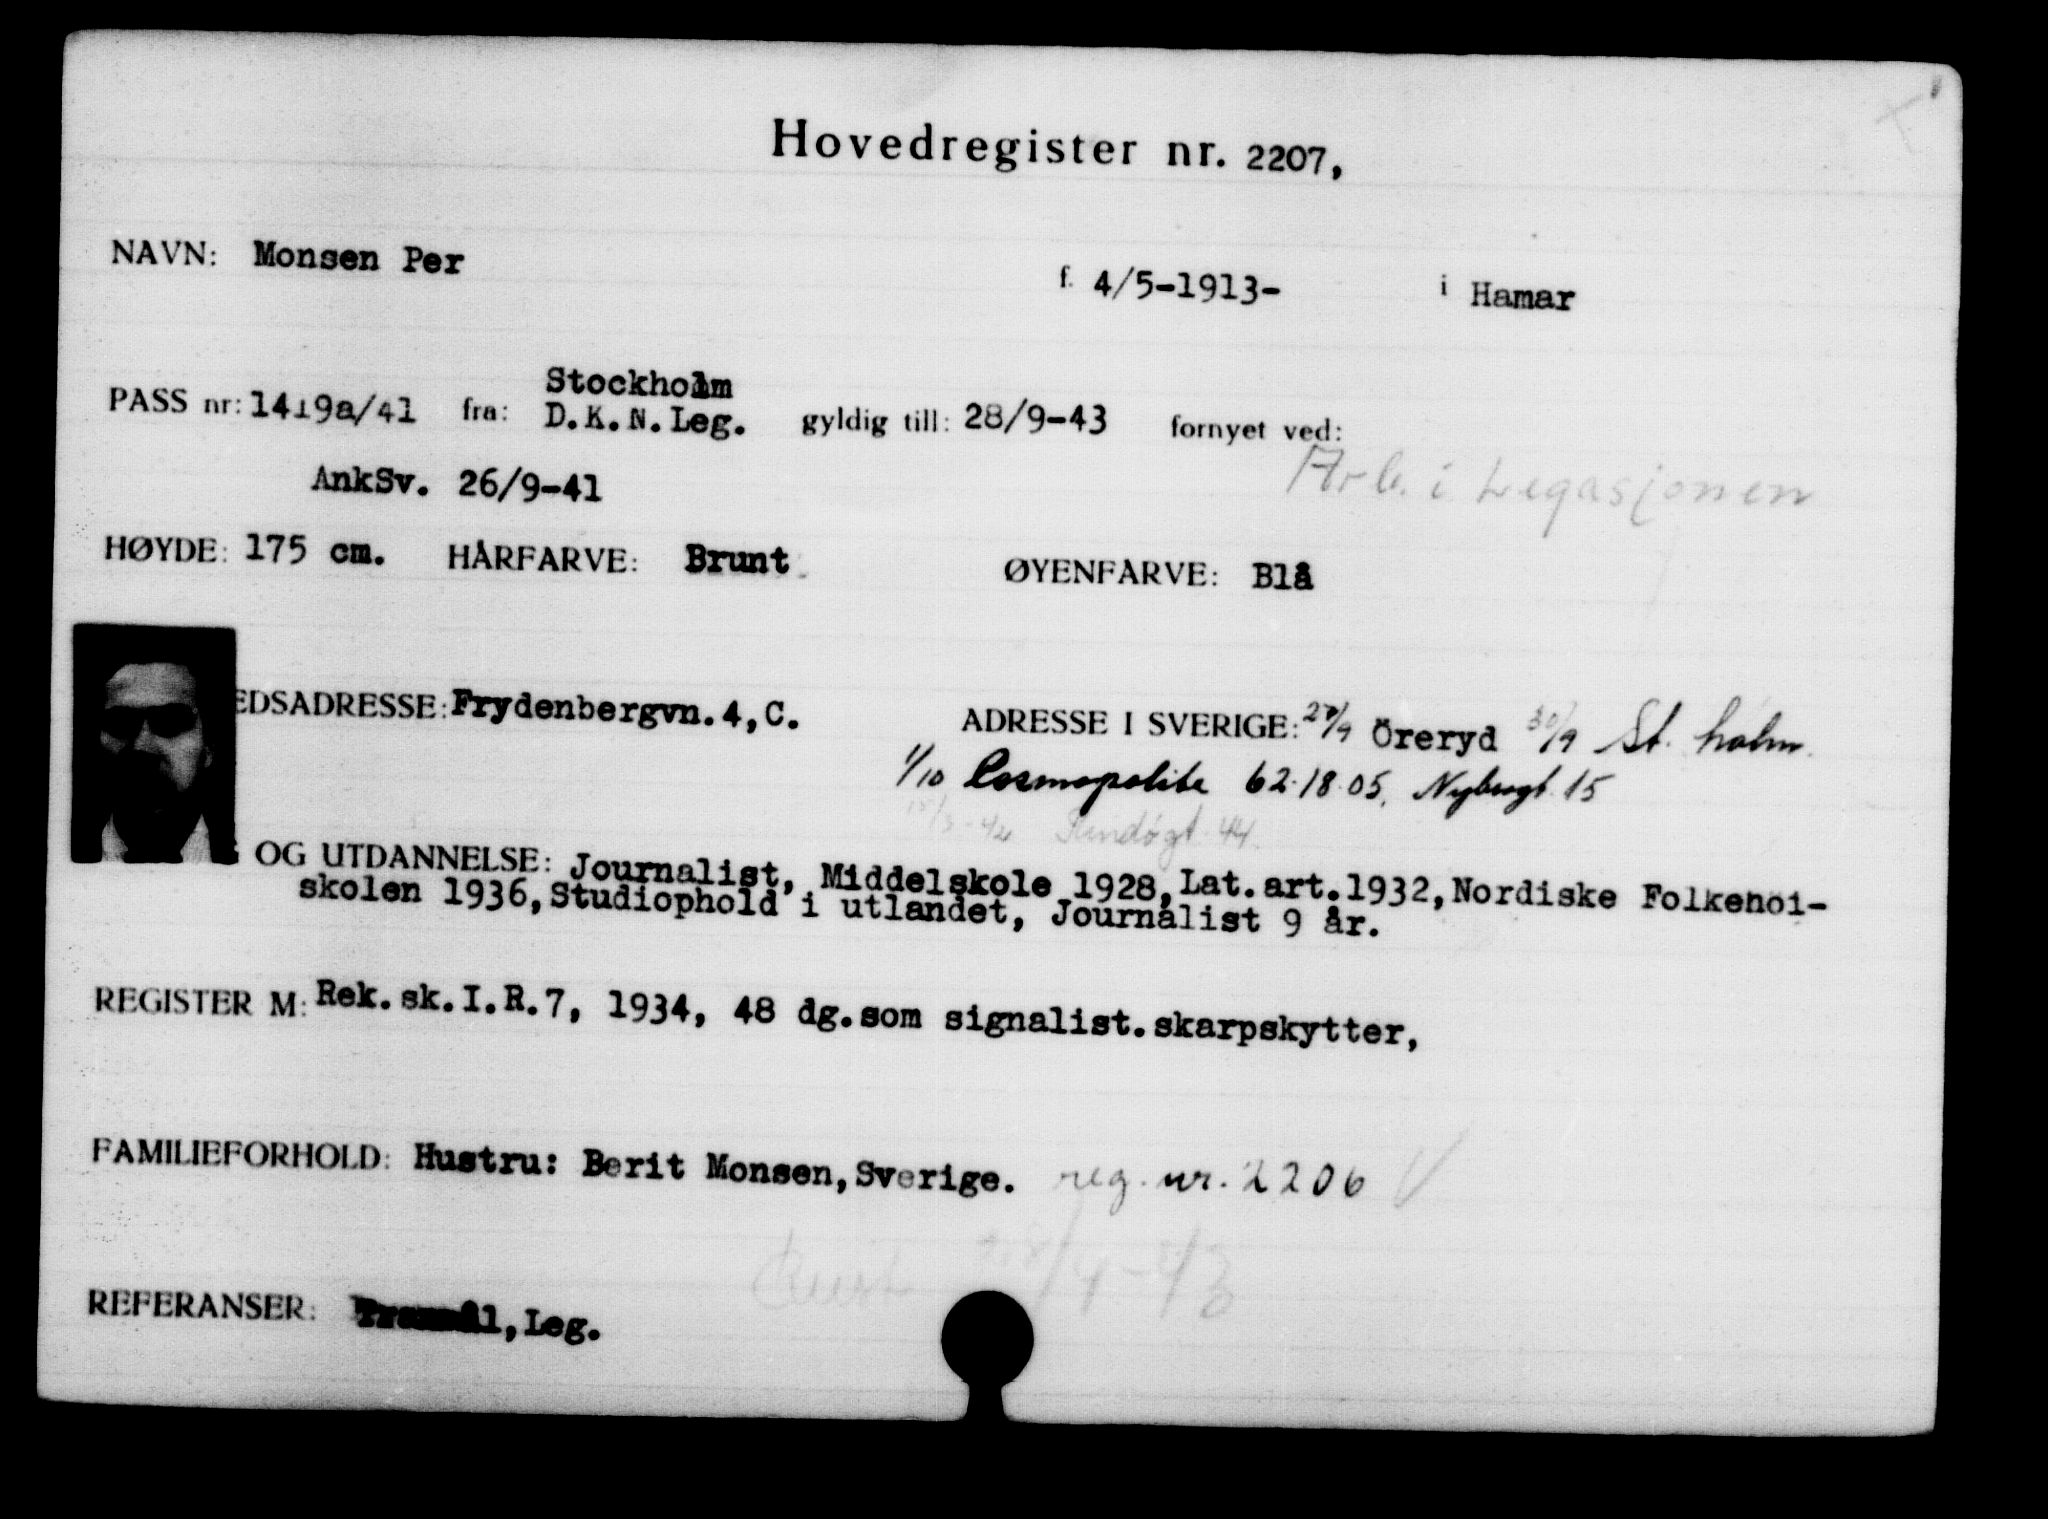 Hovedregister nr. 2207,
NAVN: Monsen Per f. 4/5-1913- i Hamar
Stockholm
PASS nr: 1419a/41 fra: D.K.N.Leg. gyldig till: 28/9-43 fornyet ved:
Arb. i Legasjonen
AnkSv. 26/9-41
HØYDE: 175 cm. HÅRFARVE: Brunt ØYENFARVE: Blå
EDSADRESSE: Frydenbergvn.4,C. ADRESSE I SVERIGE: 27/9 Öreryd 30/9 St. holm
1/10 Cosmopolite 62.18.05, Nybrogt. 15
44
OG UTDANNELSE: Journalist, Middelskole 1928, Lat.art.1932, Nordiske Folkehöi-
skolen 1936, Studiophold i utlandet, Journalist 9 år.
REGISTER M: Rek.sk.I.R.7, 1934, 48 dg.som signalist.skarpskytter,
FAMILIEFORHOLD: Hustru: Berit Monsen, Sverige. reg. nr. 2206 V
28/4-43
REFERANSER: Tranmål, Leg.